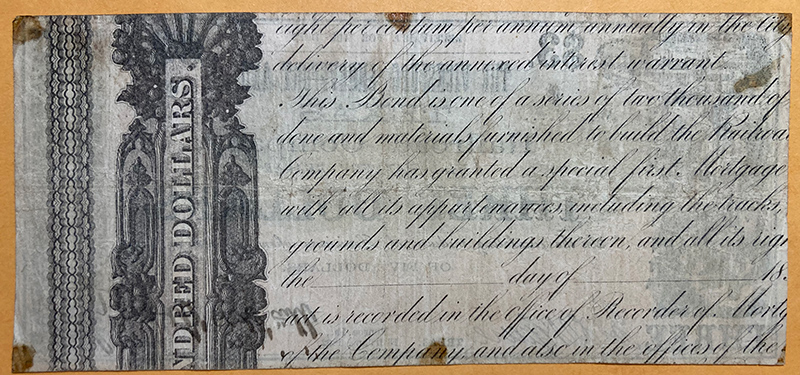 NDRED DOLLARS.
eight per centum per annum, annually in the Cit
delivery of the annexed interest warrant.
This Bond is one of a series of two thousand of
done and materials furnished to build the Railroa
Company has granted a special first Mortgage
with all its appurtenances, including the tracks,
grounds and buildings thereon, and all its righ
the day of 18
act is recorded in the office of Recorder of Mort
of the Company, and also in the offices of the